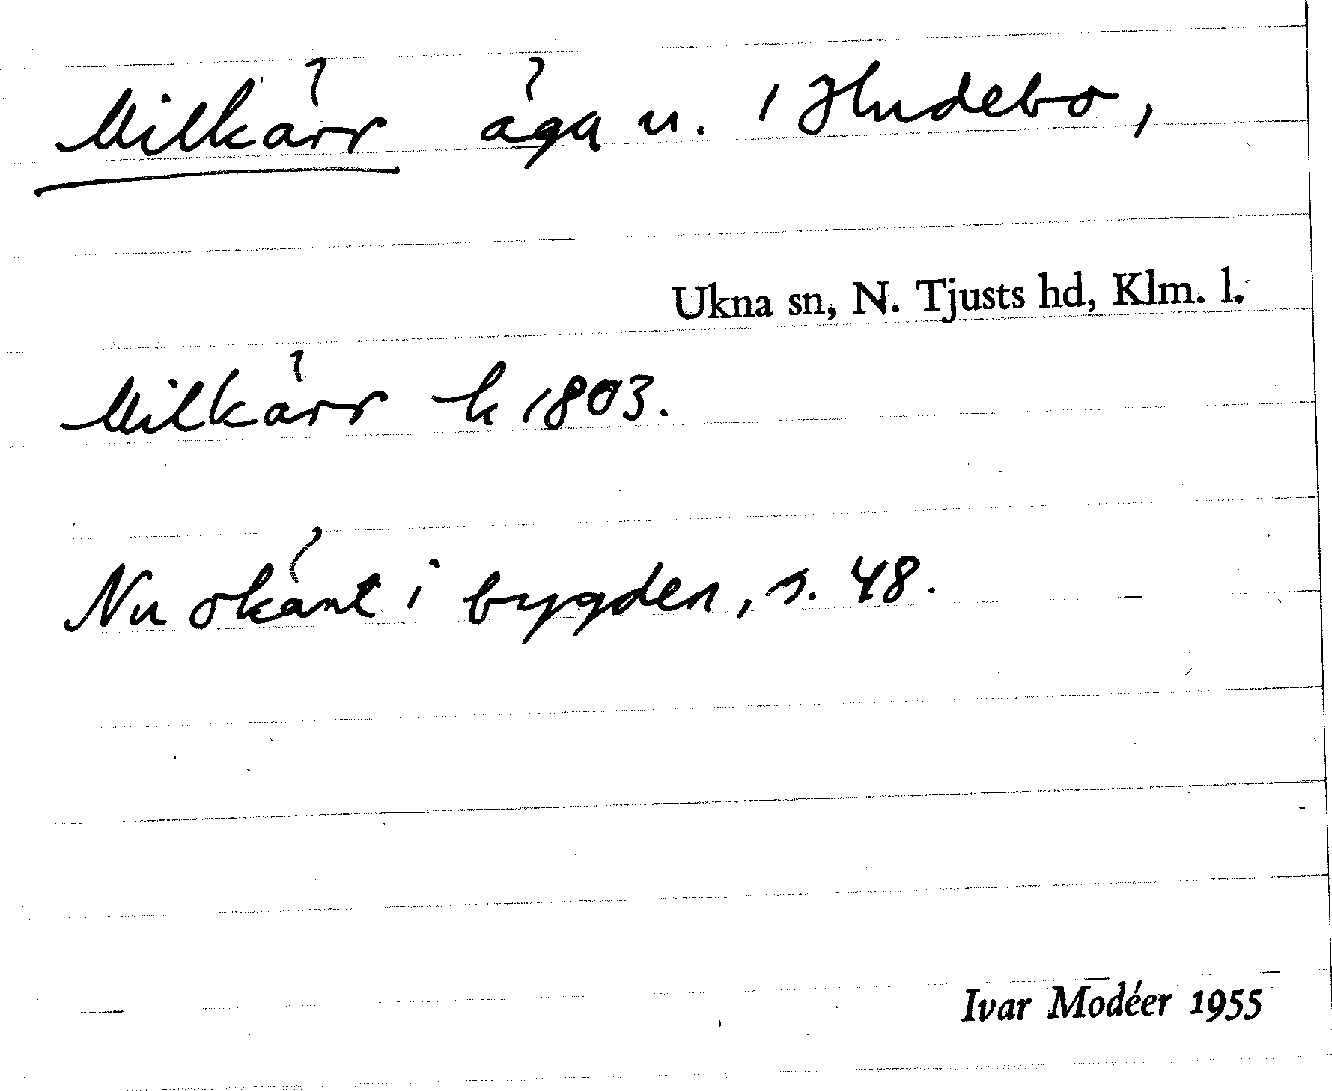 Milkärr äga u. i Hudebo,
Ukna sn, N. Tjusts hd, Klm. l.
Milkärr k 1803.
Nu okänt i bygden, s. 48.
Ivar Modéer 1955